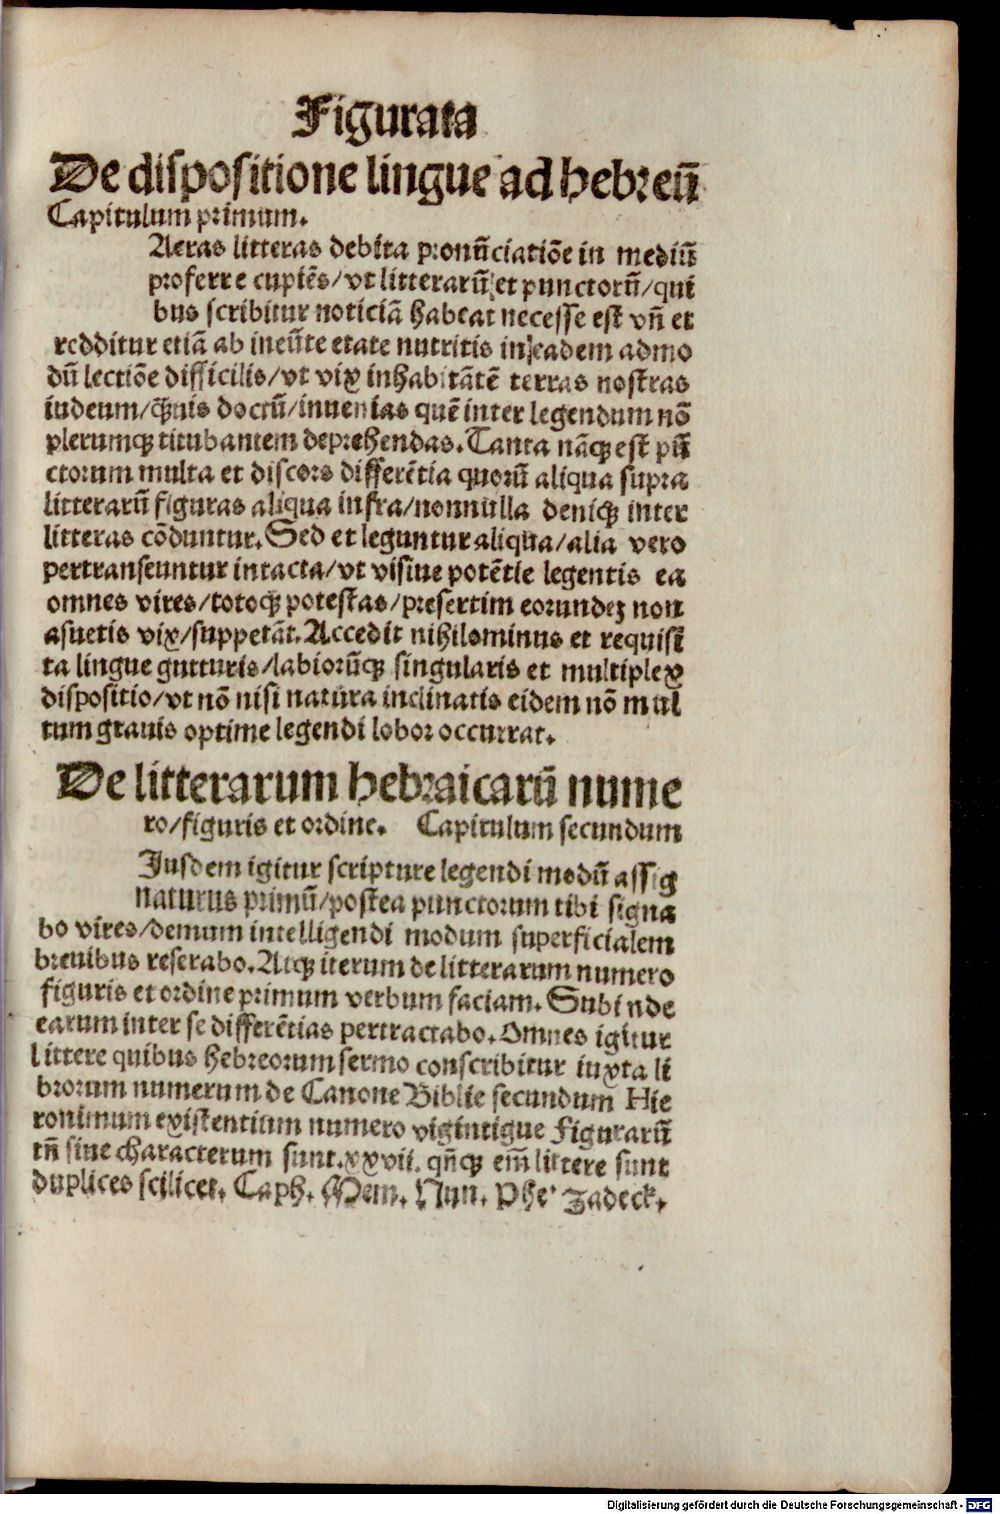 Figurata
De dispositione lingue ad hebreū
Capitulum primum.
Aeras litteras debita pronūciatiōe in mediū
proferre cupiēs/vt litterarū et punctorū/qui
bus scribitur noticiā habeat necesse est vñ et
redditur etiā ab ineūte etate nutritis in eadem admo
dū lectiōe difficilis/vt vix inhabitātē terras nostras
iudeum/qͣuis doctū/inuenias quē inter legendum nō
plerumqꝫ titubantem deprehendas. Tanta nāqꝫ est pū
ctorum multa et discors differētia quorū aliqua supra
litterarū figuras aliqua infra/nonnulla deniqꝫ inter
litteras cōduntur. Sed et leguntur aliqua/alia vero
pertranseuntur intacta/vt visiue potētie legentis ea
omnes vires/totoqꝫ potestas/presertim eorundeꝫ non
asuetis vix/suppetāt. Accedit nihilominus et requisi
ta lingue gutturis/labiorūqꝫ singularis et multiplex
dispositio/vt nō nisi natura inclinatis eidem nō mul
tum grauis optime legendi lobor occurrat.
De litterarum hebraicarū nume
ro/figuris et ordine. Capitulum secundum
Iusdem igitur scripture legendi modū assig
naturus primū/postea punctorum tibi signa
bo vires/demum intelligendi modum superficialem
breuibus reserabo. Atqꝫ iterum de litterarum numero
figuris et ordine primum verbum faciam. Subinde
earum inter se differētias pertractabo. Omnes igitur
littere quibus hebreorum sermo conscribitur iuxta li
brorum numerum de Canone Biblie secundum Hie
ronimum existentium numero vigintique Figurarū
tñ siue characterum sunt.xxvii. qñqꝫ em̄ littere sunt
duplices scilicet. Caph. Mem. Nun. Phe' zadeck.
Digitalisierung gefördert durch die Deutsche Forschungsgemeinschaft - DFG